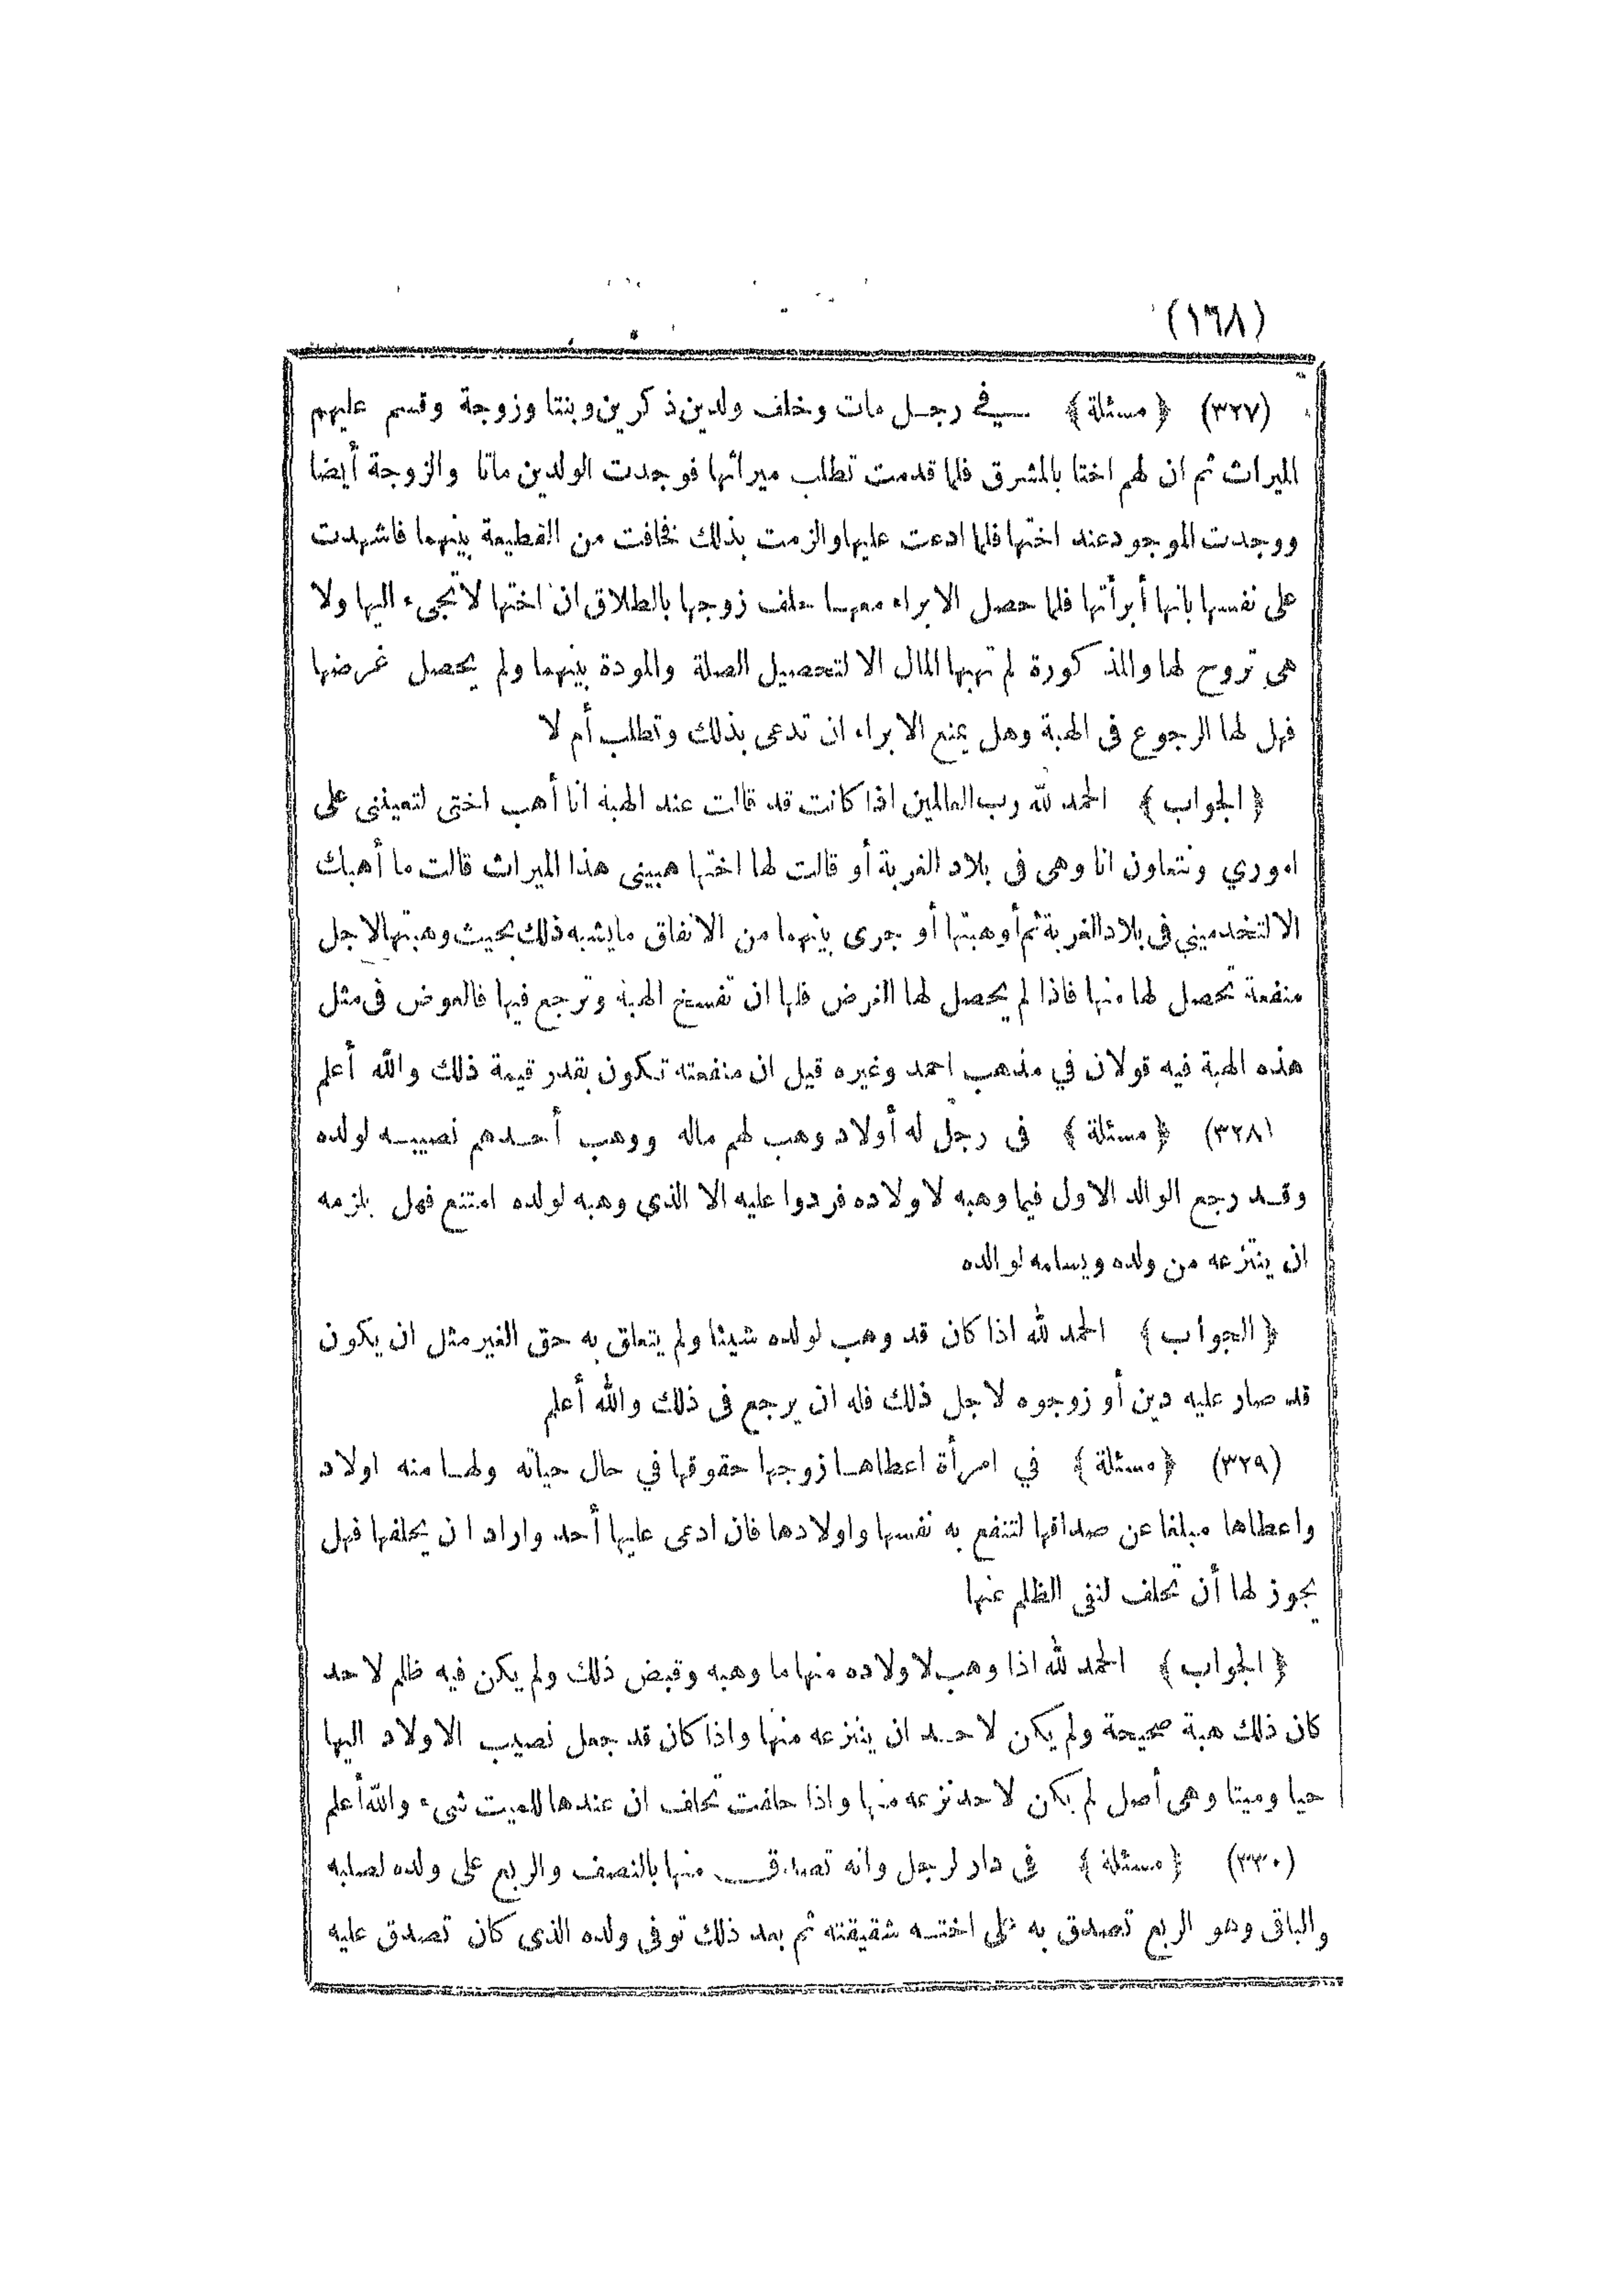 (١٦٨)
(٣٢٧) ﴿مسئلة﴾ في رجل مات وخلف ولدين ذكرين وبنتا وزوجة وقسم عليهم
الميراث ثم ان لهم اختا بالمشرق فلما قدمت تطلب ميراثها فوجدت الولدين ماتا والزوجة أيضا
ووجدت الموجود عند اختها فلما ادعت عليها والزمت بذلك فخافت من القطيعة بينهما فاشهدت
على نفسها بانها أبرأتها فلما حصل الابراء معها حلف زوجها بالطلاق ان اختها لا تجىء اليها ولا
هي تروح لها والمذكورة لم تهبها المال الا لتحصيل الصلة والمودة بينهما ولم يحصل غرضها
فهل لها الرجوع فى الهبة وهل يمنع الابراء ان تدعى بذلك وتطلب أم لا
﴿الجواب﴾ الحمد لله رب العالمين اذا كانت قد قالت عند الهبة انا أهب اختى لتعيننى على
اموري ونتعاون انا وهى فى بلاد الغربة أو قالت لها اختها هبينى هذا الميراث قالت ما أهبك
الا لتخدميني فى بلاد الغربة ثم أوهبتها أو جرى بينهما من الاتفاق ما يشبه ذلك بحيث وهبتها لاجل
منفعة تحصل لها منها فاذا لم يحصل لها الغرض فلها ان تفسخ الهبة وترجع فيها فالعوض فى مثل
هذه الهبة فيه قولان في مذهب احمد وغيره قيل ان منفعته تكون بقدر قيمة ذلك والله أعلم
(٣٢٨) ﴿مسئلة﴾ فى رجل له أولاد وهب لهم ماله ووهب أحدهم نصيبه لولده
وقد رجع الوالد الاول فيما وهبه لاولاده فردوا عليه الا الذي وهبه لولده امتنع فهل يلزمه
ان ينتزعه من ولده ويسلمه لوالده
﴿الجواب﴾ الحمد لله اذا كان قد وهب لولده شيئا ولم يتعلق به حق الغير مثل ان يكون
قد صار عليه دين أو زوجوه لاجل ذلك فله ان يرجع فى ذلك والله أعلم
(٣٢٩) ﴿مسئلة﴾ في امرأة اعطاها زوجها حقوقها في حال حياته ولها منه اولاد
واعطاها مبلغا عن صداقها لتنفع به نفسها واولادها فان ادعى عليها أحد واراد ان يحلفها فهل
يجوز لها أن تحلف لنفى الظلم عنها
﴿الجواب﴾ الحمد لله اذا وهب لاولاده منها ما وهبه وقبض ذلك ولم يكن فيه ظلم لاحد
كان ذلك هبة صحيحة ولم يكن لاحد ان ينزعه منها واذا كان قد جعل نصيب الاولاد اليها
حيا وميتا وهى أصل لم يكن لاحد نزعه منها واذا حلفت تحلف ان عندها للميت شىء والله أعلم
(٣٣٠) ﴿مسئلة﴾ فى دار لرجل وانه تصدق منها بالنصف والربع على ولده لصلبه
والباقى وهو الربع تصدق به على اخته شقيقته ثم بعد ذلك توفى ولده الذى كان تصدق عليه